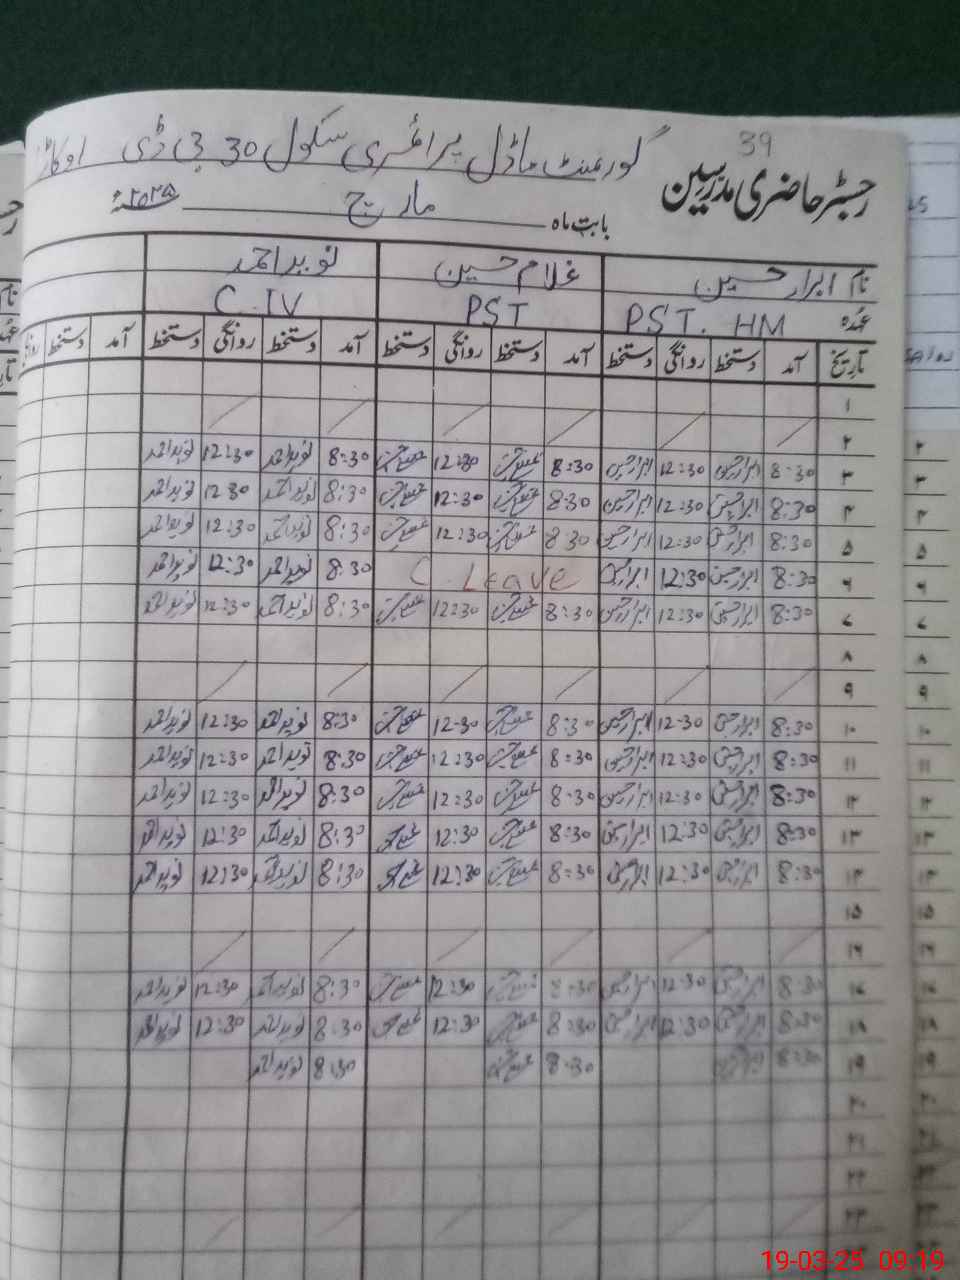 39
گورنمنٹ ماڈل پرائمری سکول 30 جی ڈی اوکاڑہ
رجسٹر حاضری مدرسین
بابت ماہ مارچ ۲۰۲۵ء
نام ابرار حسین غلام حسین نوید احمد
عہدہ PST. HM PST C.IV
تاریخ آمد دستخط روانگی دستخط آمد دستخط روانگی دستخط آمد دستخط روانگی دستخط آمد دستخط
۱
۲
۳ 8:30 ابرار حسین 12:30 ابرار حسین 8:30 غلام حسین 12:30 غلام حسین 8:30 نوید احمد 12:30 نوید احمد
۴ 8:30 ابرار حسین 12:30 ابرار حسین 8:30 غلام حسین 12:30 غلام حسین 8:30 نوید احمد 12:30 نوید احمد
۵ 8:30 ابرار حسین 12:30 ابرار حسین 8:30 غلام حسین 12:30 غلام حسین 8:30 نوید احمد 12:30 نوید احمد
۶ 8:30 ابرار حسین 12:30 ابرار حسین C. Leave 8:30 نوید احمد 12:30 نوید احمد
۷ 8:30 ابرار حسین 12:30 ابرار حسین 8:30 غلام حسین 12:30 غلام حسین 8:30 نوید احمد 12:30 نوید احمد
۸
۹
۱۰ 8:30 ابرار حسین 12:30 ابرار حسین 8:30 غلام حسین 12:30 غلام حسین 8:30 نوید احمد 12:30 نوید احمد
۱۱ 8:30 ابرار حسین 12:30 ابرار حسین 8:30 غلام حسین 12:30 غلام حسین 8:30 نوید احمد 12:30 نوید احمد
۱۲ 8:30 ابرار حسین 12:30 ابرار حسین 8:30 غلام حسین 12:30 غلام حسین 8:30 نوید احمد 12:30 نوید احمد
۱۳ 8:30 ابرار حسین 12:30 ابرار حسین 8:30 غلام حسین 12:30 غلام حسین 8:30 نوید احمد 12:30 نوید احمد
۱۴ 8:30 ابرار حسین 12:30 ابرار حسین 8:30 غلام حسین 12:30 غلام حسین 8:30 نوید احمد 12:30 نوید احمد
۱۵
۱۶
۱۷ 8:30 ابرار حسین 12:30 ابرار حسین 8:30 غلام حسین 12:30 غلام حسین 8:30 نوید احمد 12:30 نوید احمد
۱۸ 8:30 ابرار حسین 12:30 ابرار حسین 8:30 غلام حسین 12:30 غلام حسین 8:30 نوید احمد 12:30 نوید احمد
۱۹ 8:30 ابرار حسین 8:30 غلام حسین 8:30 نوید احمد
۲۰
۲۱
۲۲
۲۳
19-03-25 09:19